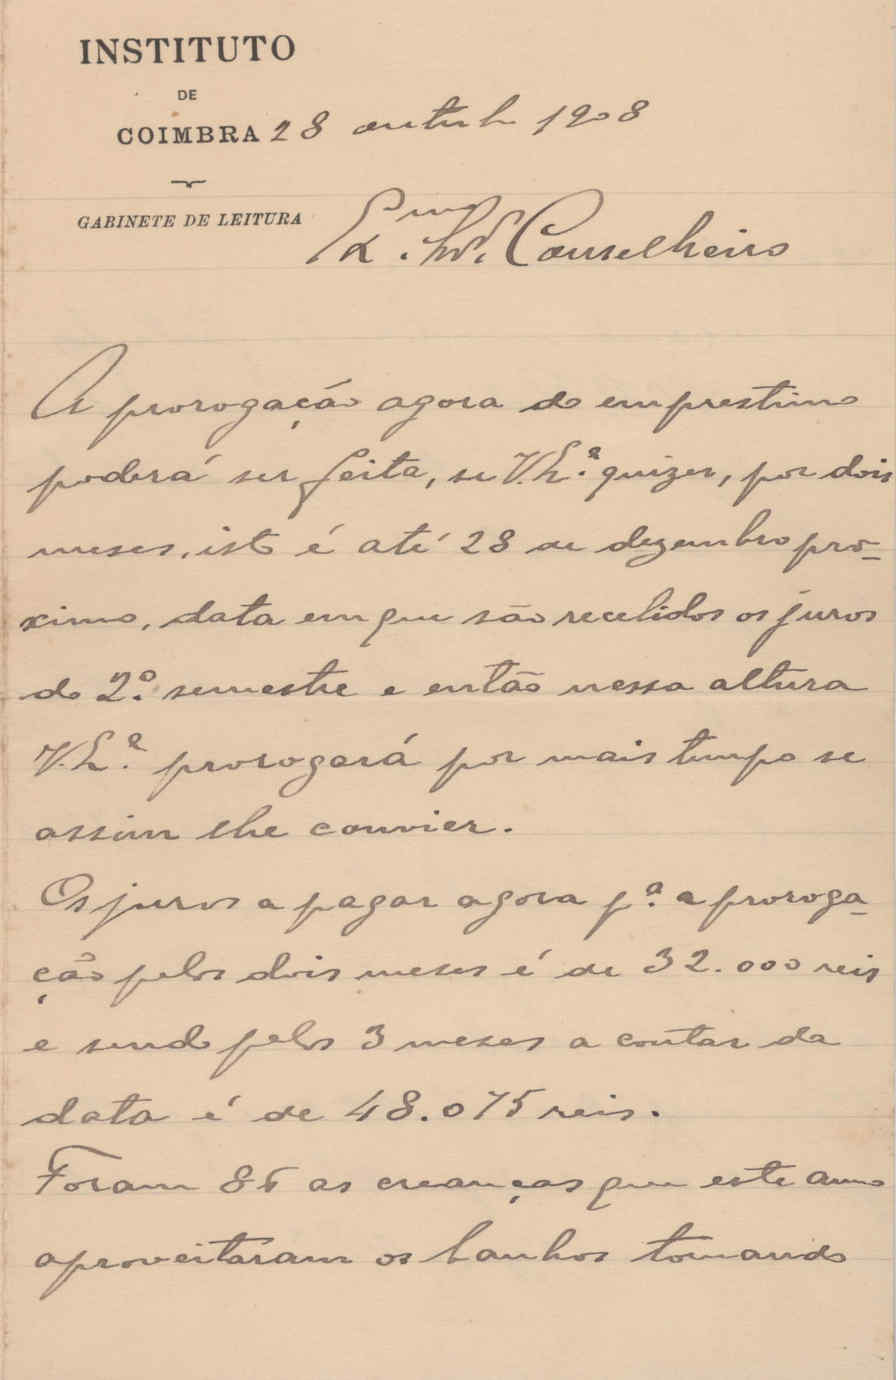 INSTITUTO
DE
COIMBRA 28 outubº 1908
GABINETE DE LEITURA
Ex.mo Snr. Conselheiro
A prorogação agora do emprestimo
poderá ser feita, se V. Ex.ª quizer, por dois
meses, isto é até 28 de dezembro pro-
ximo, data em que são recebidos os juros
do 2.º semestre e então nessa altura
V. Ex.ª prorogará por mais tempo se
assim lhe convier.
Os juros a pagar agora p.ª a proroga-
ção pelos dois meses é de 32.000 reis
e sendo pelos 3 meses a contar da
data é de 48.075 reis.
Foram 86 as creanças que este anno
aproveitáram os banhos tomando